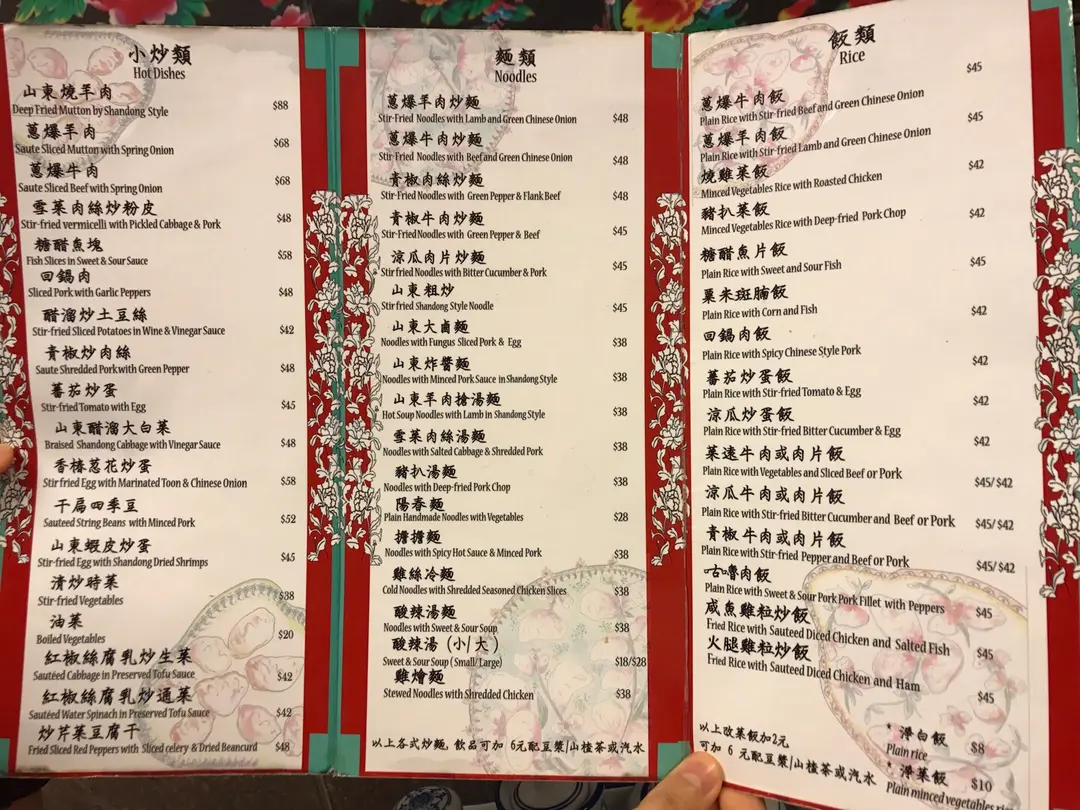 小炒類
Hot Dishes
山東燒羊肉
Deep Fried Mutton by Shandong Style $88
蔥爆羊肉
Saute Sliced Mutton with Spring Onion $68
蔥爆牛肉
Saute Sliced Beef with Spring Onion $68
雪菜肉絲炒粉皮
Stir-fried vermicelli with Pickled Cabbage & Pork $48
糖醋魚塊
Fish Slices in Sweet & Sour Sauce $58
回鍋肉
Sliced Pork with Garlic Peppers $48
醋溜炒土豆絲
Stir-fried Sliced Potatoes in Wine & Vinegar Sauce $42
青椒炒肉絲
Saute Shredded Pork with Green Pepper $48
蕃茄炒蛋
Stir-fried Tomato with Egg $45
山東醋溜大白菜
Braised Shandong Cabbage with Vinegar Sauce $48
香椿蔥花炒蛋
Stir fried Egg with Marinated Toon & Chinese Onion $58
干扁四季豆
Sauteed String Beans with Minced Pork $52
山東蝦皮炒蛋
Stir-fried Egg with Shandong Dried Shrimps $45
清炒時菜
Stir-fried Vegetables $38
油菜
Boiled Vegetables $20
紅椒絲腐乳炒生菜
Sautéed Cabbage in Preserved Tofu Sauce $42
紅椒絲腐乳炒通菜
Sautéed Water Spinach in Preserved Tofu Sauce $42
炒芹菜豆腐干
Fried Sliced Red Peppers with Sliced celery & Dried Beancurd $48
麵類
Noodles
蔥爆羊肉炒麵
Stir-Fried Noodles with Lamb and Green Chinese Onion $48
蔥爆牛肉炒麵
Stir-Fried Noodles with Beef and Green Chinese Onion $48
青椒肉絲炒麵
Stir-Fried Noodles with Green Pepper & Flank Beef $48
青椒牛肉炒麵
Stir-Fried Noodles with Green Pepper & Beef $45
涼瓜肉片炒麵
Stir fried Noodles with Bitter Cucumber & Pork $45
山東粗炒
Stir fried Shandong Style Noodle $45
山東大鹵麵
Noodles with Fungus Sliced Pork & Egg $38
山東炸醬麵
Noodles with Minced Pork Sauce in Shandong Style $38
山東羊肉搶湯麵
Hot Soup Noodles with Lamb in Shandong Style $38
雪菜肉絲湯麵
Noodles with Salted Cabbage & Shredded Pork $38
豬扒湯麵
Noodles with Deep-fried Pork Chop $38
陽春麵
Plain Handmade Noodles with Vegetables $28
擔擔麵
Noodles with Spicy Hot Sauce & Minced Pork $38
雞絲冷麵
Cold Noodles with Shredded Seasoned Chicken Slices $38
酸辣湯麵
Noodles with Sweet & Sour Soup $38
酸辣湯 (小/大)
Sweet & Sour Soup (Small/Large) $18/$28
雞燴麵
Stewed Noodles with Shredded Chicken $38
以上各式炒麵, 飲品可加 6元配豆漿/山楂茶或汽水
飯類
Rice
蔥爆牛肉飯 $45
Plain Rice with Stir-fried Beef and Green Chinese Onion
蔥爆羊肉飯 $45
Plain Rice with Stir-fried Lamb and Green Chinese Onion
燒雞菜飯 $42
Minced Vegetables Rice with Roasted Chicken
豬扒菜飯 $42
Minced Vegetables Rice with Deep-fried Pork Chop
糖醋魚片飯 $45
Plain Rice with Sweet and Sour Fish
粟米斑腩飯 $42
Plain Rice with Corn and Fish
回鍋肉飯
Plain Rice with Spicy Chinese Style Pork $42
蕃茄炒蛋飯
Plain Rice with Stir-fried Tomato & Egg $42
涼瓜炒蛋飯
Plain Rice with Stir-fried Bitter Cucumber & Egg $42
菜遠牛肉或肉片飯
Plain Rice with Vegetables and Sliced Beef or Pork $45/$42
涼瓜牛肉或肉片飯
Plain Rice with Stir-fried Bitter Cucumber and Beef or Pork $45/$42
青椒牛肉或肉片飯
Plain Rice with Stir-fried Pepper and Beef or Pork $45/$42
咕嚕肉飯
Plain Rice with Sweet & Sour Pork Pork Fillet with Peppers $45
咸魚雞粒炒飯
Fried Rice with Sauteed Diced Chicken and Salted Fish $45
火腿雞粒炒飯
Fried Rice with Sauteed Diced Chicken and Ham $45
以上改菜飯加2元
可加 6 元配豆漿/山楂茶或汽水
* 淨白飯 $8
Plain rice
* 淨菜飯 $10
Plain minced vegetables